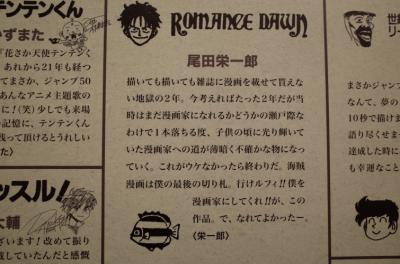 テンテンくん
ずまた
『花さか天使テンテンく
あれから21年も経つ
てまさか、ジャンプ50
あんなアニメ主題歌の
に!(笑)少しでも来場
の記憶に、テンテンくん
残って頂けるとうれしい
ッスル!
大輔
ざいます!改めて振り
載していたんだと感慨
ROMANCE DAWN
尾田栄一郎
描いても描いても雑誌に漫画を載せて貰えな
い地獄の2年。今考えればたった2年だが当
時はまだ漫画家になれるかどうかの瀬戸際な
わけで1本落ちる度、子供の頃に光り輝いて
いた漫画家への道が薄暗く不確かな物になっ
ていく。これがウケなかったら終わりだ。海賊
漫画は僕の最後の切り札。行けルフィ!僕を
漫画家にしてくれ!!が、この
作品。で、なれてよかったー。
〈栄一郎〉
世紀
リー
まさかジャン
なんて、夢の
10秒で描けま
語り尽くせま
達成した時に
も幸運なこと